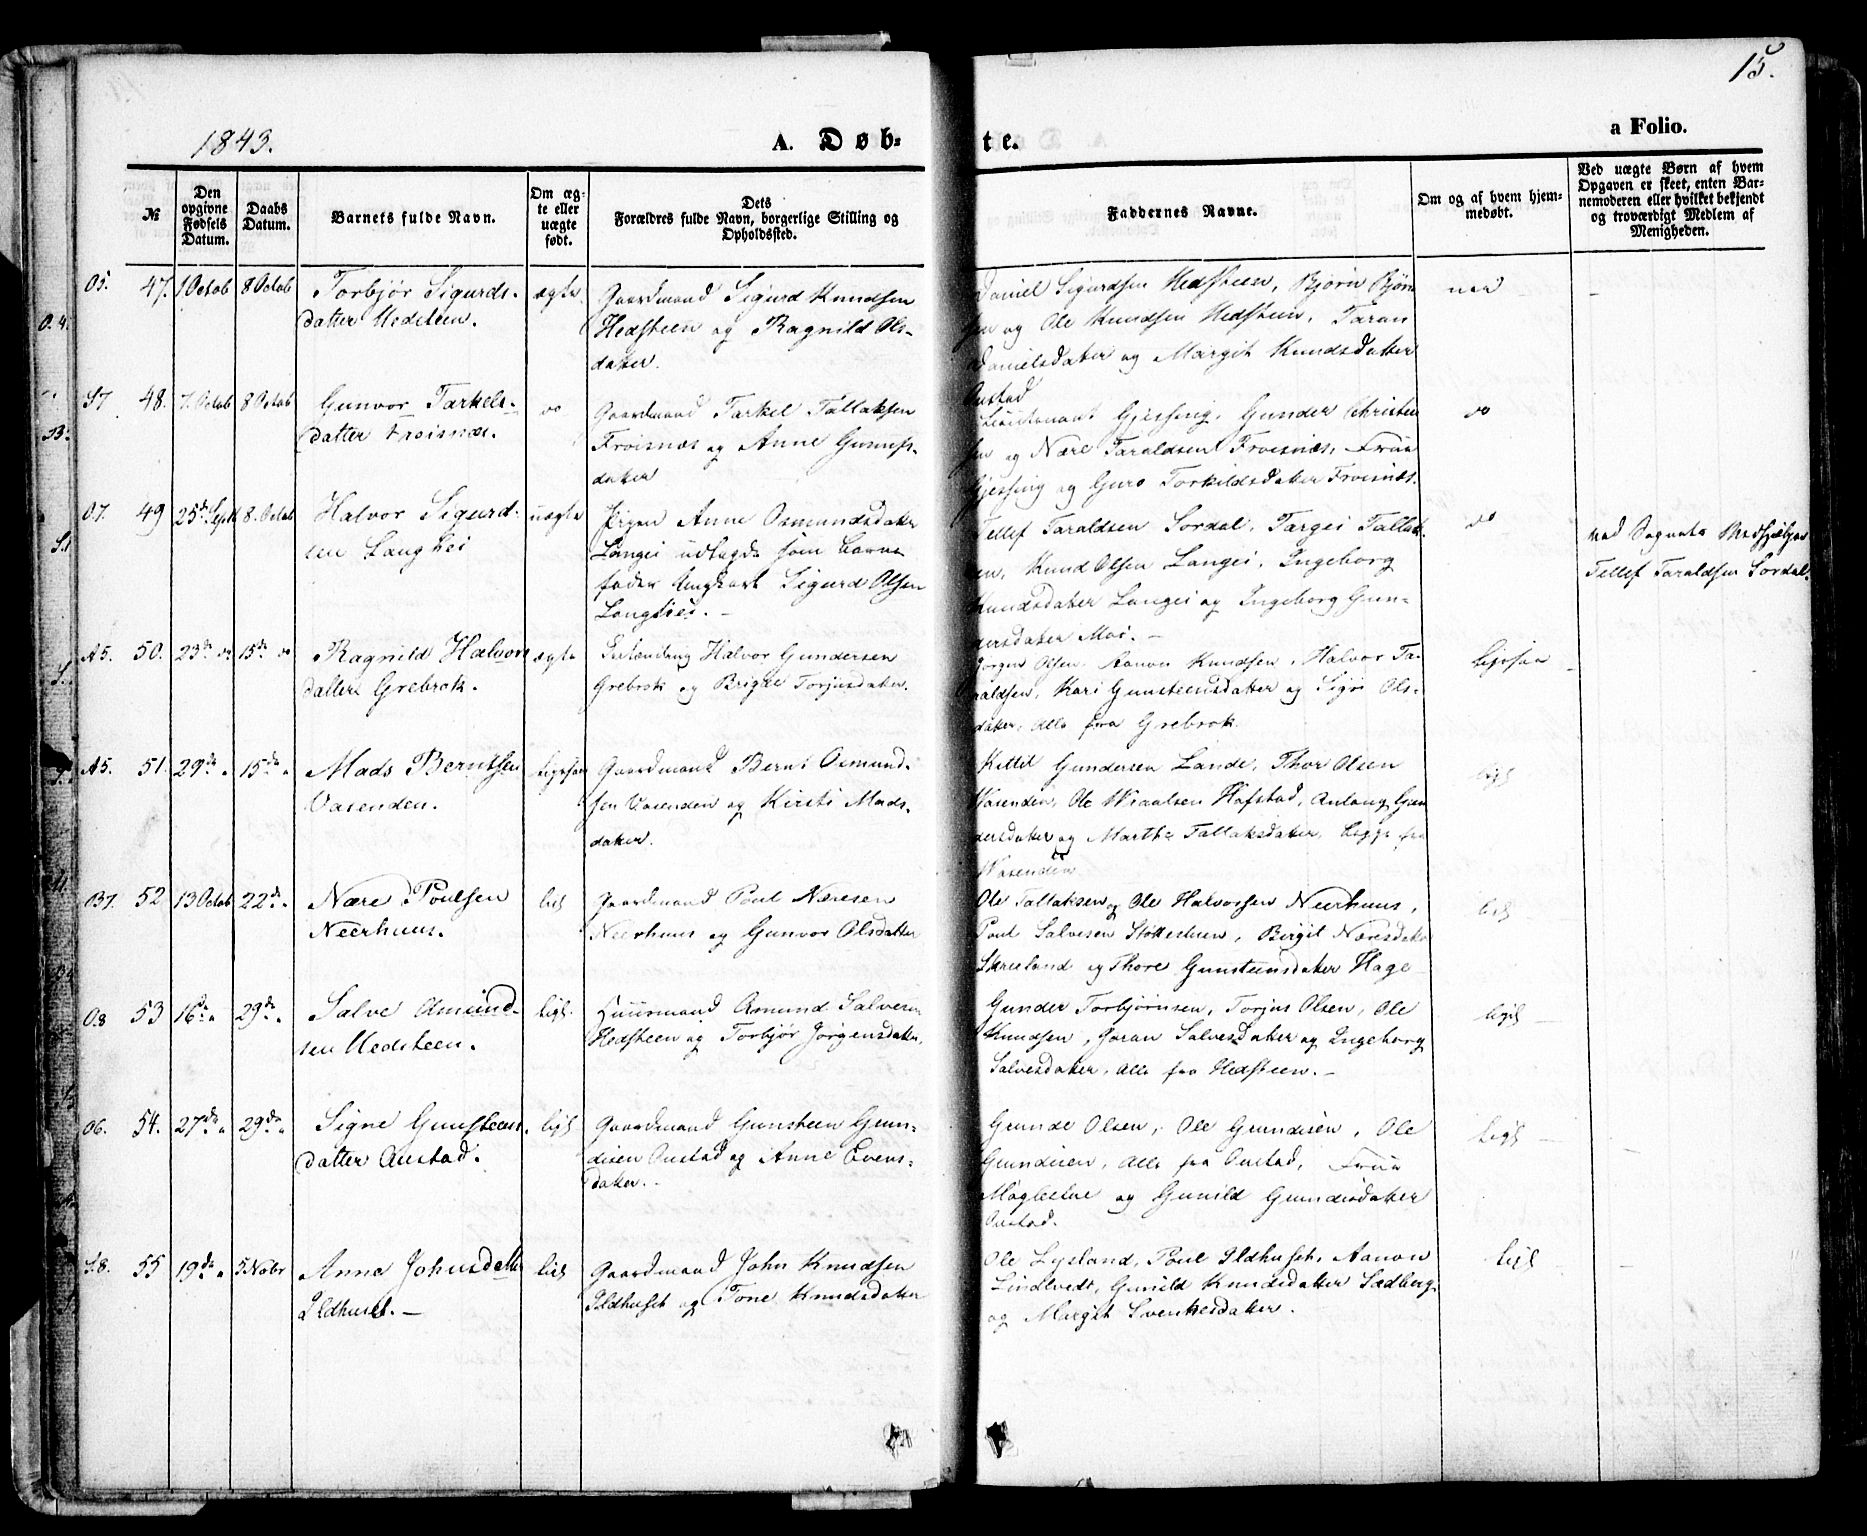 15.
1843.
A. Døb-
te.
a Folio.
№
Den opgivne Fødsels Datum.
Daabs Datum.
Barnets fulde Navn.
Om ægte eller uægte født.
Dets Forældres fulde Navn, borgerlige Stilling og Opholdssted.
Faddernes Navne.
Om og af hvem hjemmedøbt.
Ved uægte Børn af hvem Opgaven er skeet, enten Barnemoderen eller hvilket bekjendt og troværdigt Medlem af Menigheden.
O5. 47. 1 Octob 8 Octob
Torbjør Sigurds-
datter Hedsteen.
ægte
Gaardmand Sigurd Knudsen
Hedsteen og Ragnild Ols-
datter.
Daniel Sigurdsen Hedsteen, Bjørn Bjørn
sen og Ole Knudsen Hedsteen, Taran
Danielsdatter og Margit Knudsdatter
Oustad
nei
S7 48. 7. Octob 8 Octob
Gunvor Tarkels-
datter Froisnæs.
do
Gaardmand Tarkel Tallaksen
Froisnæs og Anne Gunufs-
datter
Lieutenant Gjessing, Gunder Christen
sen og Nære Taraldsen Froisnæs, Frue
Gjessing og Guro Torkildsdatter Froisnæs.
do
O7. 49 25de Sept 8. Octob
Halvor Sigurd-
sen Langhei
uægte
Pigen Anne Osmundsdatter
Langei udlagde som Barne
fader Ungkarl Sigurd Olsen
Langhei. -
Tellef Taraldsen Sordal, Targei Tallak-
en, Knud Olsen Langei, Ingeborg
Knudsdatter Langei og Ingeborg Gun-
dersdatter Moi. -
do
ved Sognets Medhjælper
Tellef Taraldsen Sordal.
A5. 50. 23de do 15de do
Ragnild Halvors
datter Grebrok.
ægte
Halvor Gundersen
Grebrok og Birgte Torjusdatter.
Jørgen Olsen, Aanon Knudsen, Halvor Ta-
raldsen, Kari Gunsteensdatter og Sigri Ols-
datter, alle fra Grebrok.
ligesaa
A5. 51. 29de " 15de "
Mads Berntsen
Vasenden.
ligesaa
Gaardmand Bernt Osmund-
sen Vasenden og Kirsti Mads-
datter.
Kittil Gundersen Lande, Thor Olsen
Wasenden, Ole Wraalsen Hafstad, Anlaug Gun
dersdatter og Marthe Tallaksdatter, begge fra
Wasenden
ligs
B7. 52 13 Octob 22de "
Nære Poulsen
Neerhuus.
ligs
Gaardmand Poul Næresen
Neerhuus og Gunvor Olsdatter
Ole Tallaksen og Ole Halvorsen Neerhuus,
Poul Salvesen Støttestuen, Birgit Næresdatter
Skreeland og Thore Gunsteensdatter Hage
ligs
O8 53 16de " 29de "
Salve Amund-
sen Hedsteen.
ligs.
Huusmand Amund Salvesen
Hedsteen og Torbjør Jørgensdatter.
Gunder Torbjørnsen, Torjus Olsen, Ole
Knudsen, Joran Salvesdatter og Ingeborg
Salvesdatter, alle fra Hedsteen. -
ligs
O6. 54. 27de " 29de "
Signe Gunsteens-
datter Oustad.
ligs
Gaardmand Gunsteen Gun-
disen Oustad og Anne Evens-
datter. -
Grunde Olsen, Ole Grundesen, Ole
Grundesen, alle fra Oustad, Frue
Møglestue og Gunild Grundesdatter
Oustad.
ligs
S.8. 55 19de " 5 Nobr
Anne Johnsdatter
Ildhuset. -
ligs
Gaardmand John Knudsen
Ildhuset og Tone Knudsdatter
Ole Lysland, Poul Ildhuset, Aanon
Lindtvedt, Gunild Knudsdatter Sædberg,
og Margit Svenkesdatter.
ligs